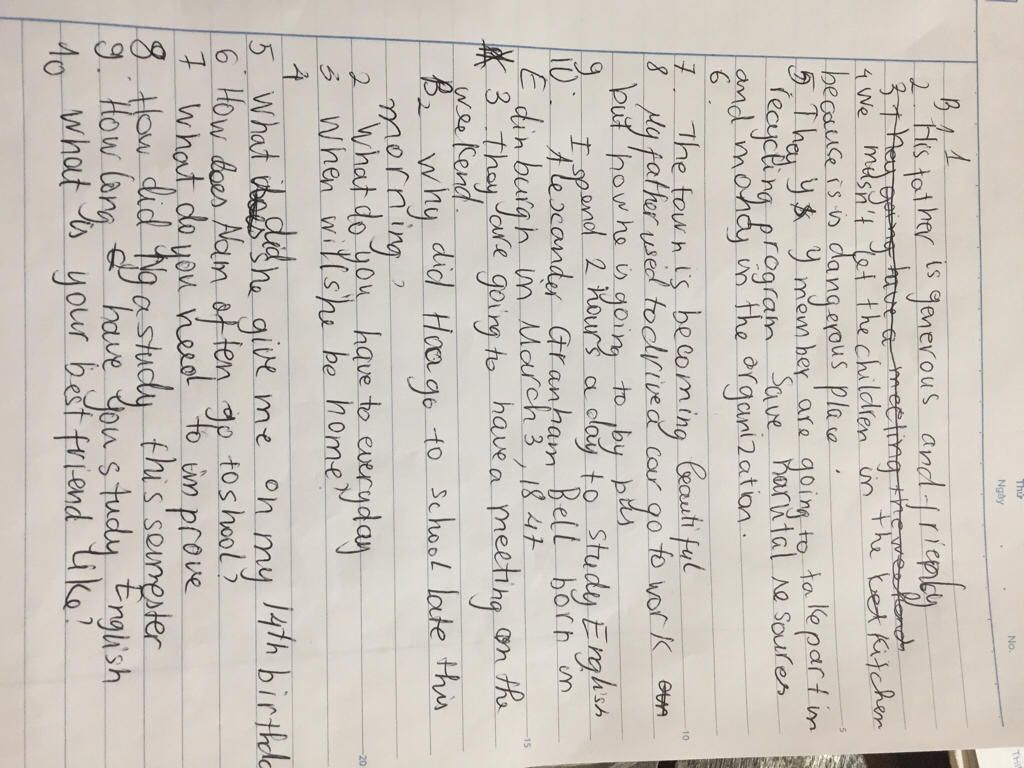 Thứ
Ngày
No.
B 1
2 His father is generous and friendly
3 They going have a meeting the weekend
4 we musn't let the children in the kitchen
because is is dangerous place.
5 They y y member are going to take part in
recycling program Save naristal resources
and mondy in the organization.
6.
7. The town is becoming beautiful
8 My father used to drived car go to work
but now he is going to by
9 I spend 2 hours a day to study English
10. Alexander Granham Bell born in
Edinburgh in March 3, 1847
3 They are going to have a meeting on the
weekend.
B2 Why did Hoa go to school late this
morning?
2 What do you have to everyday
3 When will she be home?
4
5 What did she give me on my 14th birthda
6. How does Nam often go to shool?
7 What do you need to improve
8 How did Nga study this semester
9. How long have you study English
10 What is your best friend like?
5
10
15
20